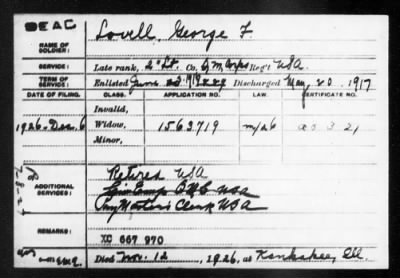 DEAC
NAME OF SOLDIER: Lovell, George F.
SERVICE: Late rank, 2" Lt. Co. Q M Corps Reg't USA
TERM OF SERVICE: Enlisted June Discharged May 20, 1917
DATE OF FILING. CLASS. APPLICATION NO. LAW. CERTIFICATE NO.
Invalid,
1926-Dec. 6 Widow, 1563719
Minor,
ADDITIONAL SERVICES: Retired USA
USA
Paymasters Clerk USA
REMARKS:
XC 667 970
Died Nov. 12, 1926, at Kankakee, Ill.